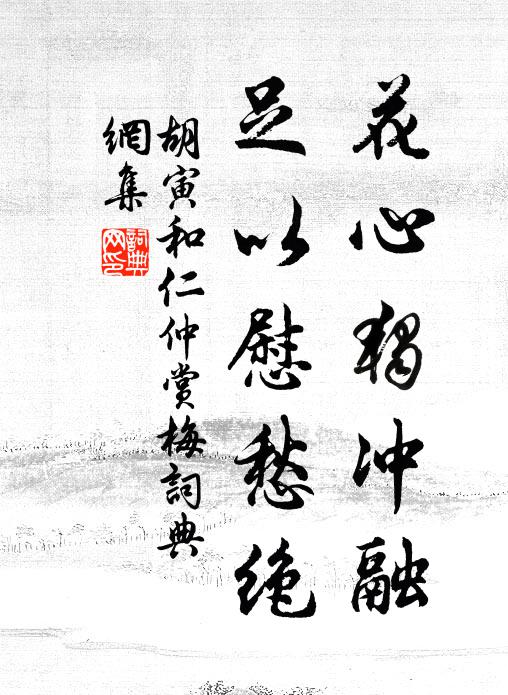 花心独冲融
足以慰愁绝
胡寅和仁仲赏梅詞典
網集
詞典
网印